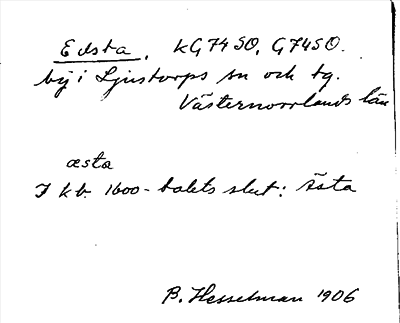 Edsta, KG74SO, G74SO.
by i Ljustorps sn och tg.
Västernorrlands län
æsta
I kb. 1600-talets slut: Ästa
B. Hesselman 1906